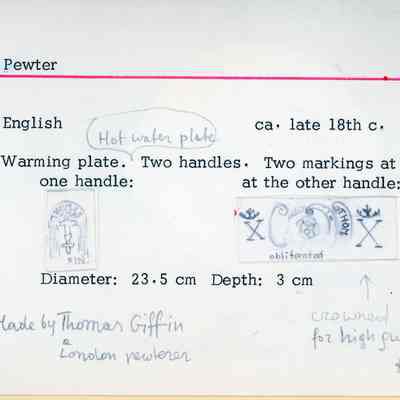 Pewter
English
Hot water plate
ca. late 18th c.
Warming plate. Two handles. Two markings at
one handle:
at the other handle:
THOMA
FIN
THOM
X
X
obliterated
Diameter: 23.5 cm Depth: 3 cm
Made by Thomas Giffin
a London pewterer
crowned
for high